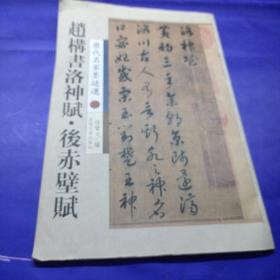 歷代名家墨迹選
趙構書洛神賦·後赤壁賦
洛神賦
黃初三年余朝京師還濟
洛川古人有言斯水之神名
曰宓妃感宋玉對楚王神